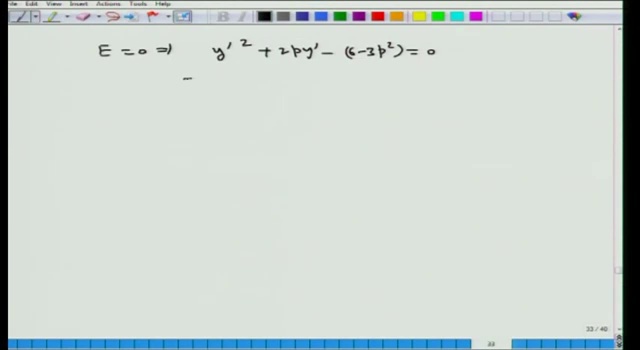 File View Insert Actions Tools Help
E = 0 ⇒ y'² + 2py' − (6−3p²) = 0
33 / 40
33